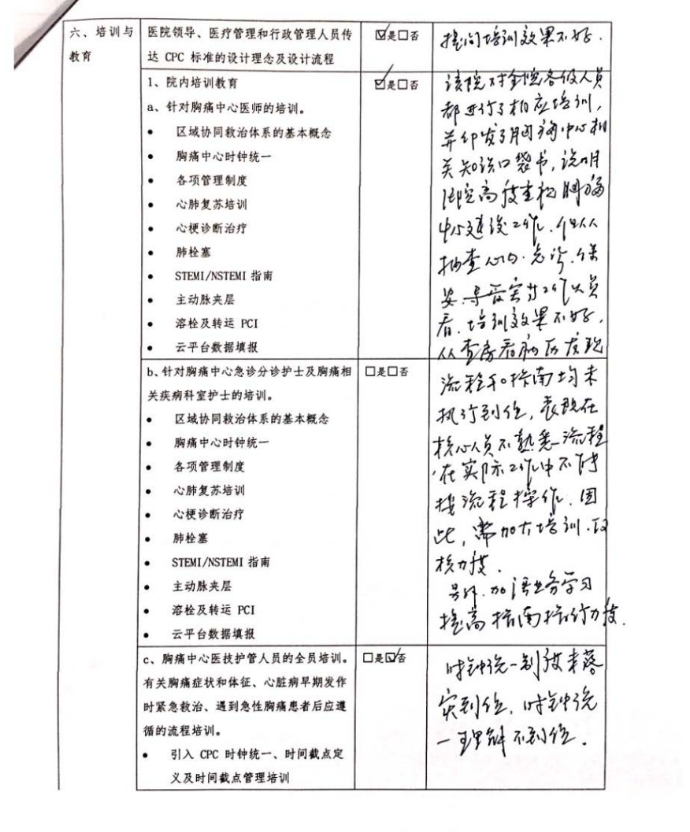 六、培训与
教育
医院领导、医疗管理和行政管理人员传
达 CPC 标准的设计理念及设计流程
☑是□否
提问培训效果不好.
1、院内培训教育
a、针对胸痛中心医师的培训。
• 区域协同救治体系的基本概念
• 胸痛中心时钟统一
• 各项管理制度
• 心肺复苏培训
• 心梗诊断治疗
• 肺栓塞
• STEMI/NSTEMI 指南
• 主动脉夹层
• 溶栓及转运 PCI
• 云平台数据填报
☑是□否
该院对全院各级人员
都进行了相应培训,
并印发了胸痛中心相
关知识口袋书,说明
医院高度重视胸痛
中心建设工作.但从
抽查心内.急诊.
人员
看.培训效果不好,
从查房看病历发现
b、针对胸痛中心急诊分诊护士及胸痛相
关疾病科室护士的培训。
• 区域协同救治体系的基本概念
• 胸痛中心时钟统一
• 各项管理制度
• 心肺复苏培训
• 心梗诊断治疗
• 肺栓塞
• STEMI/NSTEMI 指南
• 主动脉夹层
• 溶栓及转运 PCI
• 云平台数据填报
□是□否
流程和指南均未
执行到位,表现在
核心人员不熟悉流程
在实际工作中不
按流程操作.因
此,需加大培训.考
核力度.
另外.加强业务学习
提高指南执行力度.
c、胸痛中心医技护管人员的全员培训。
有关胸痛症状和体征、心脏病早期发作
时紧急救治、遇到急性胸痛患者后应遵
循的流程培训。
• 引入 CPC 时钟统一、时间截点定
义及时间截点管理培训
□是☑否
时钟统一制度未落
实到位,时钟统
一理解不到位.